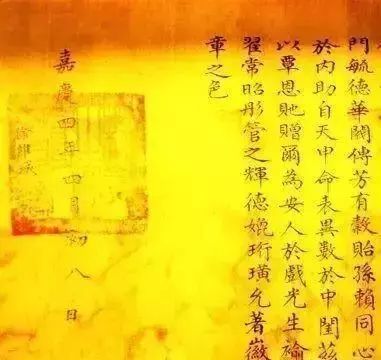 門毓德華閥傳芳有穀貽孫賴同心
於內助自天申命表異數於中閨茲
以覃恩貤贈爾為安人於戲光生褕
翟常昭彤管之輝德媲珩璜允著徽
章之色
嘉慶四年四月初八日